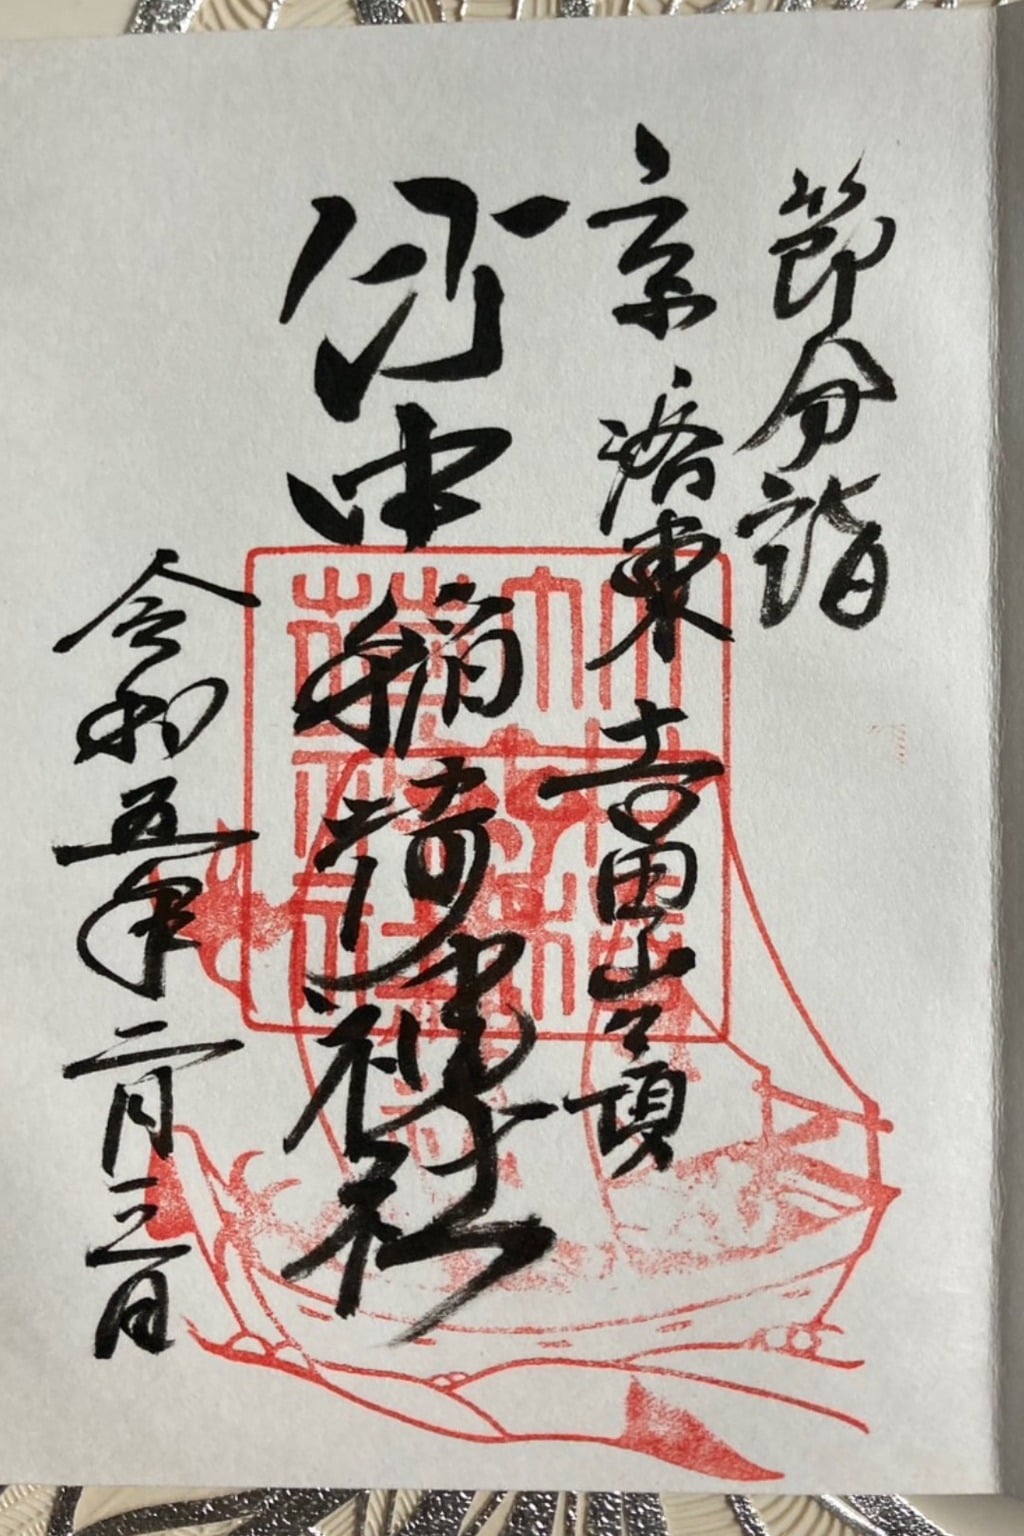 節分詣
京洛東 吉田山々頂
竹中稲荷神社
令和五年二月三日